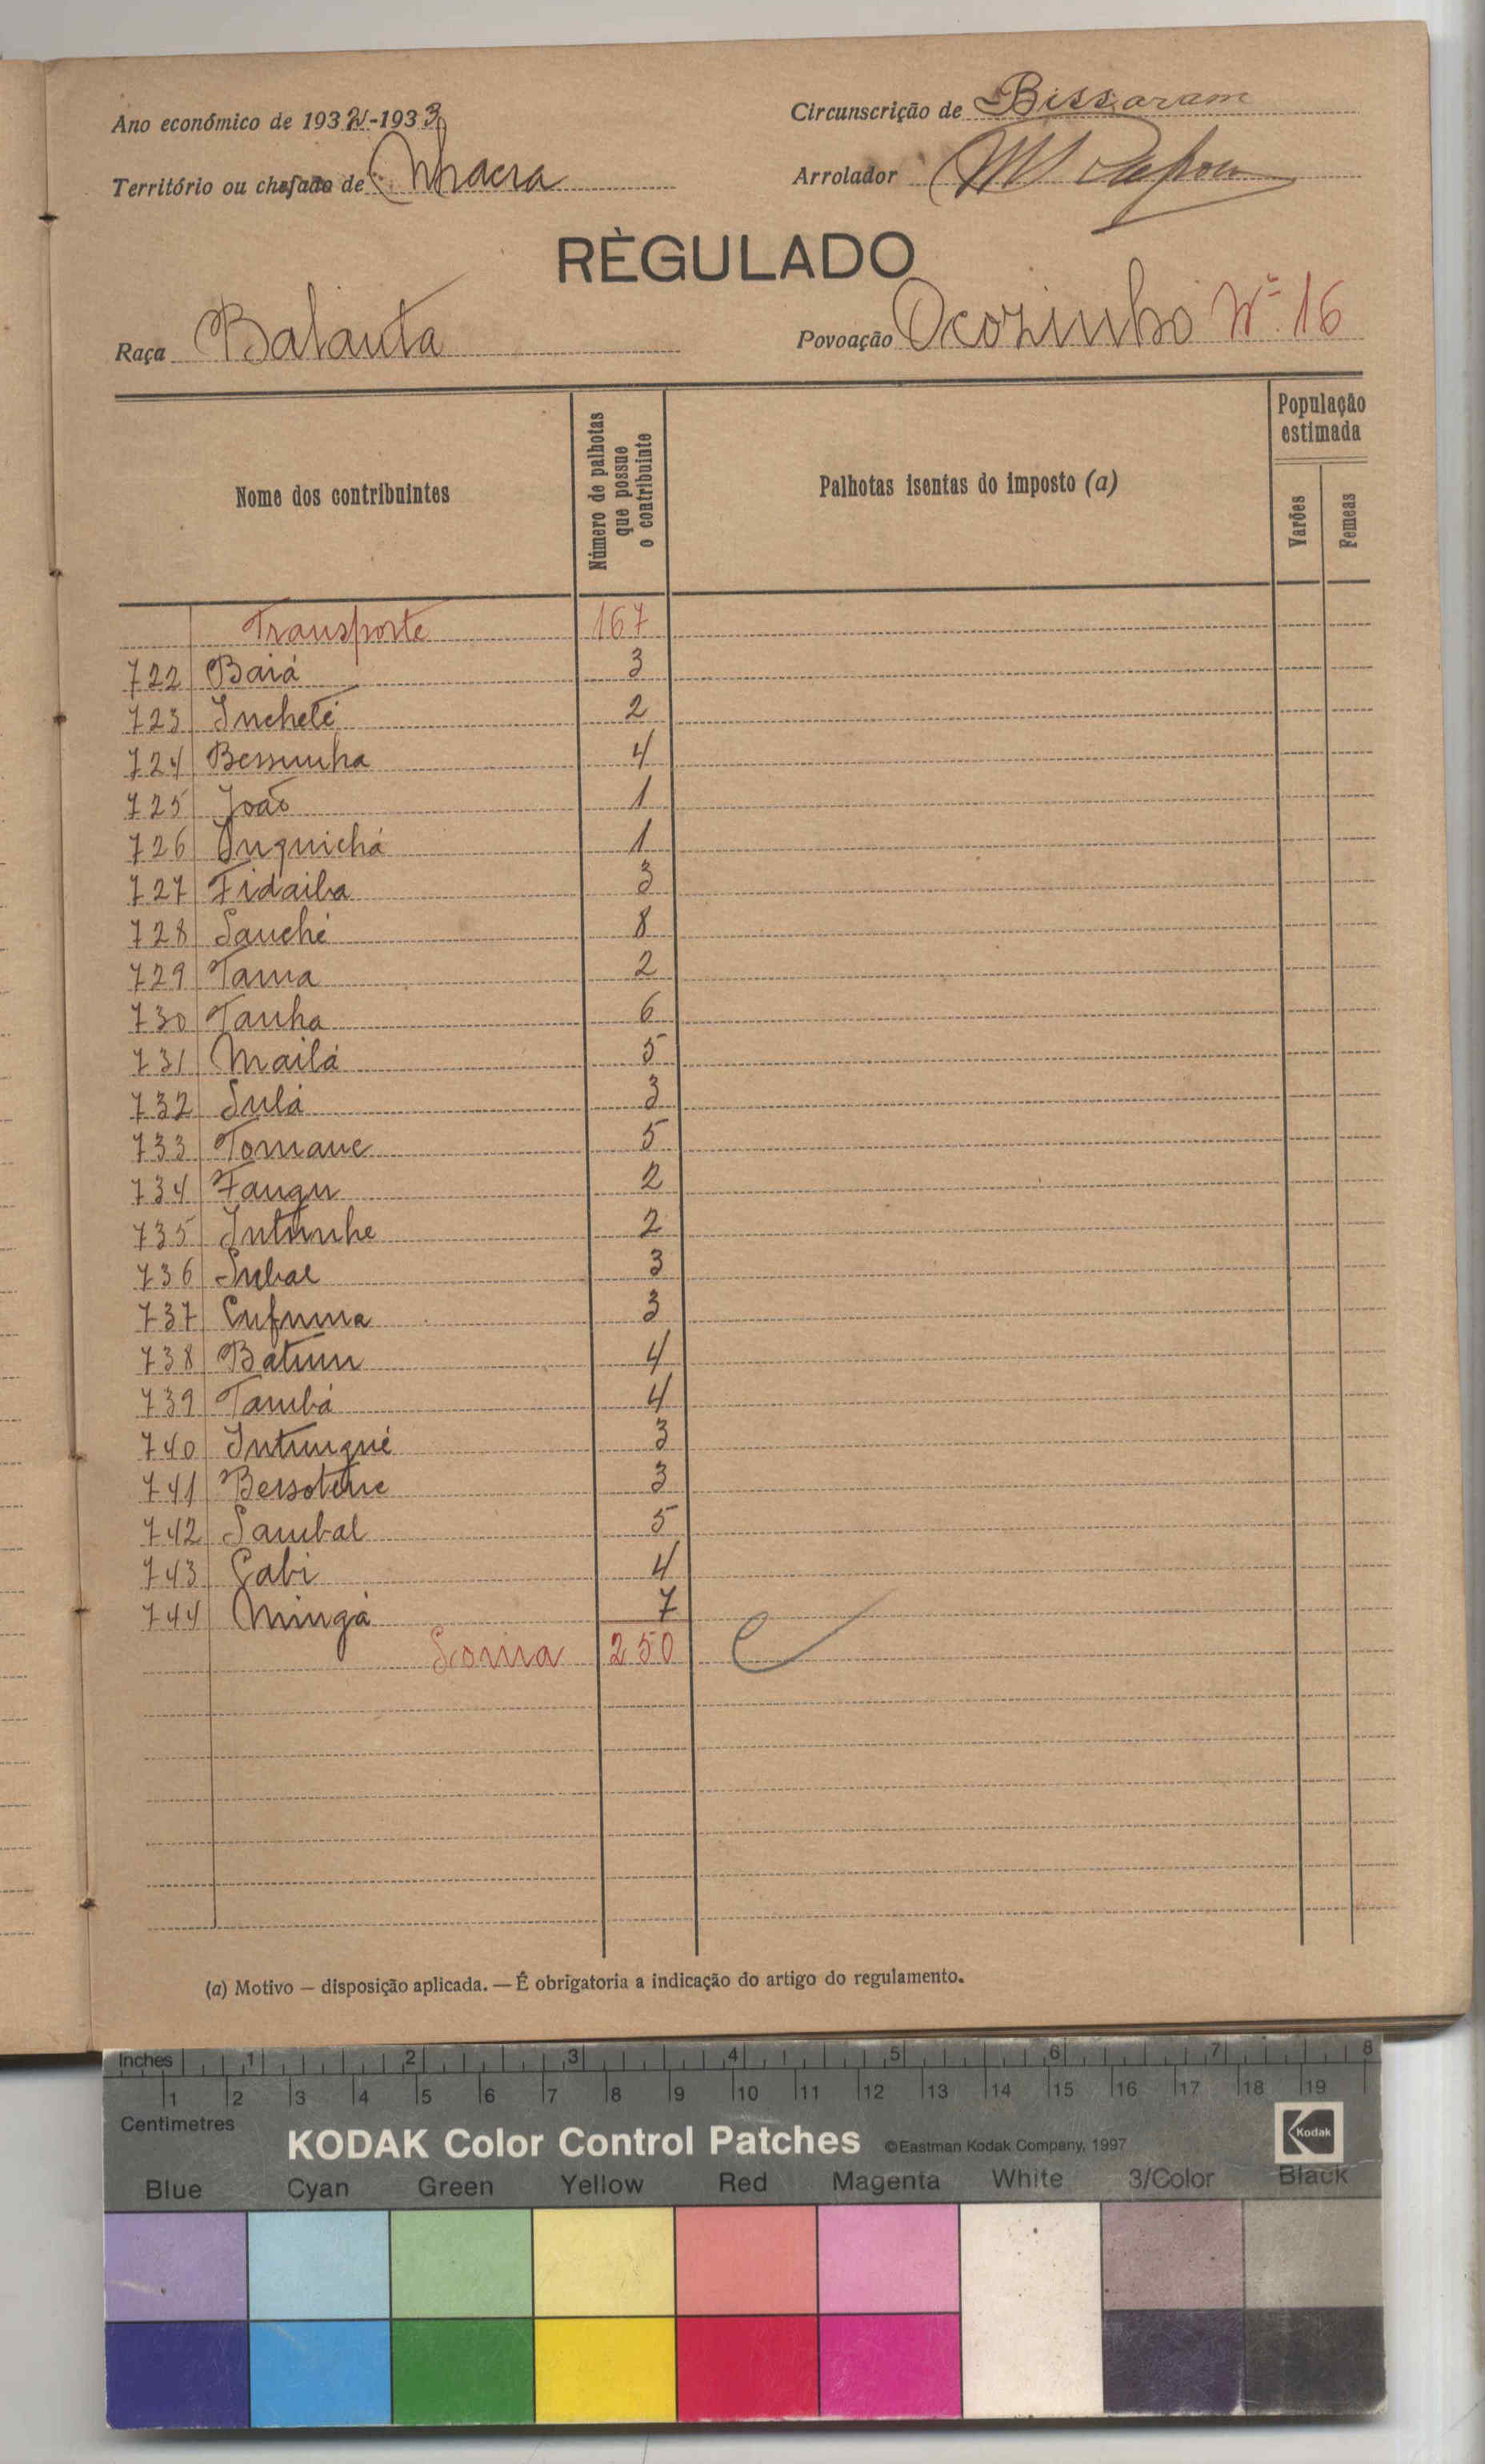 Ano económico de 1932-1933
Circunscrição de Bissoram
Território ou chefado de Nhacra
Arrolador
RÈGULADO
Raça Balanta
Povoação Ocozinho Nº 16
Nome dos contribuintes
Número de palhotas que possue o contribuinte
Palhotas isentas do imposto (a)
População estimada
Varões
Femeas
Transporte 167
722 Baiá 3
723 Incheté 2
724 Bessunha 4
725 João 1
726 Inquichá 1
727 Fidaiba 3
728 Sanché 8
729 Tama 2
730 Tanha 6
731 Mailá 5
732 Sulá 3
733 Tomane 5
734 Fangu 2
735 Intunhe 2
736 Subal 3
737 Cufuma 3
738 Batum 4
739 Tambá 4
740 Intungué 3
741 Bessotene 3
742 Sambal 5
743 Cabi 4
744 Mingá 7
Soma 250
(a) Motivo — disposição aplicada. — É obrigatoria a indicação do artigo do regulamento.
Inches 1 2 3 4 5 6 7 8
1 2 3 4 5 6 7 8 9 10 11 12 13 14 15 16 17 18 19
Centimetres
KODAK Color Control Patches ©Eastman Kodak Company, 1997 Kodak
Blue Cyan Green Yellow Red Magenta White 3/Color Black